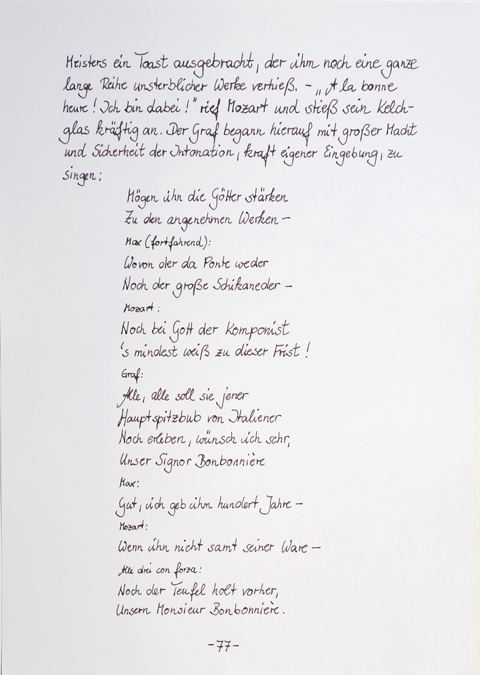 Meisters ein Toast ausgebracht, der ihm noch eine ganze
lange Reihe unsterblicher Werke verhieß. – „A la bonne
heure! Ich bin dabei!" rief Mozart und stieß sein Kelch-
glas kräftig an. Der Graf begann hierauf mit großer Macht
und Sicherheit der Intonation, kraft eigener Eingebung, zu
singen:
Mögen ihn die Götter stärken
Zu den angenehmen Werken –
Max (fortfahrend):
Wovon der da Ponte weder
Noch der große Schikaneder –
Mozart:
Noch bei Gott der Komponist
's mindest weiß zu dieser Frist!
Graf:
Alle, alle soll sie jener
Hauptspitzbub von Italiener
Noch erleben, wünsch ich sehr,
Unser Signor Bonbonnière
Max:
Gut, ich geb ihm hundert Jahre –
Mozart:
Wenn ihn nicht samt seiner Ware –
Alle drei con forza:
Noch der Teufel holt vorher,
Unsern Monsieur Bonbonnière.
-77-